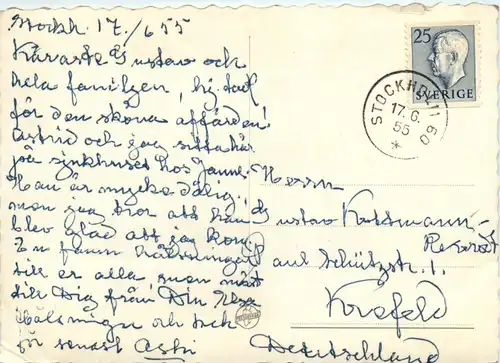 Stockh. 17./6 55
Käraste Gustav och
hela familjen, hj. tack
för den sköna affären!
Astrid och jag sitta här
på sjukhuset hos Janne.
Han är mycket dålig,
men jag tror att han
blev glad att jag kom.
En famn hälsningar
till er alla, men mest
till Dig från Din
Hälsningar och tack
för senast
25
SVERIGE
STOCKHOLM 60
17.6.
55
Herrn
Gustav
Schützstr. 1.
Krefeld
Deutschland